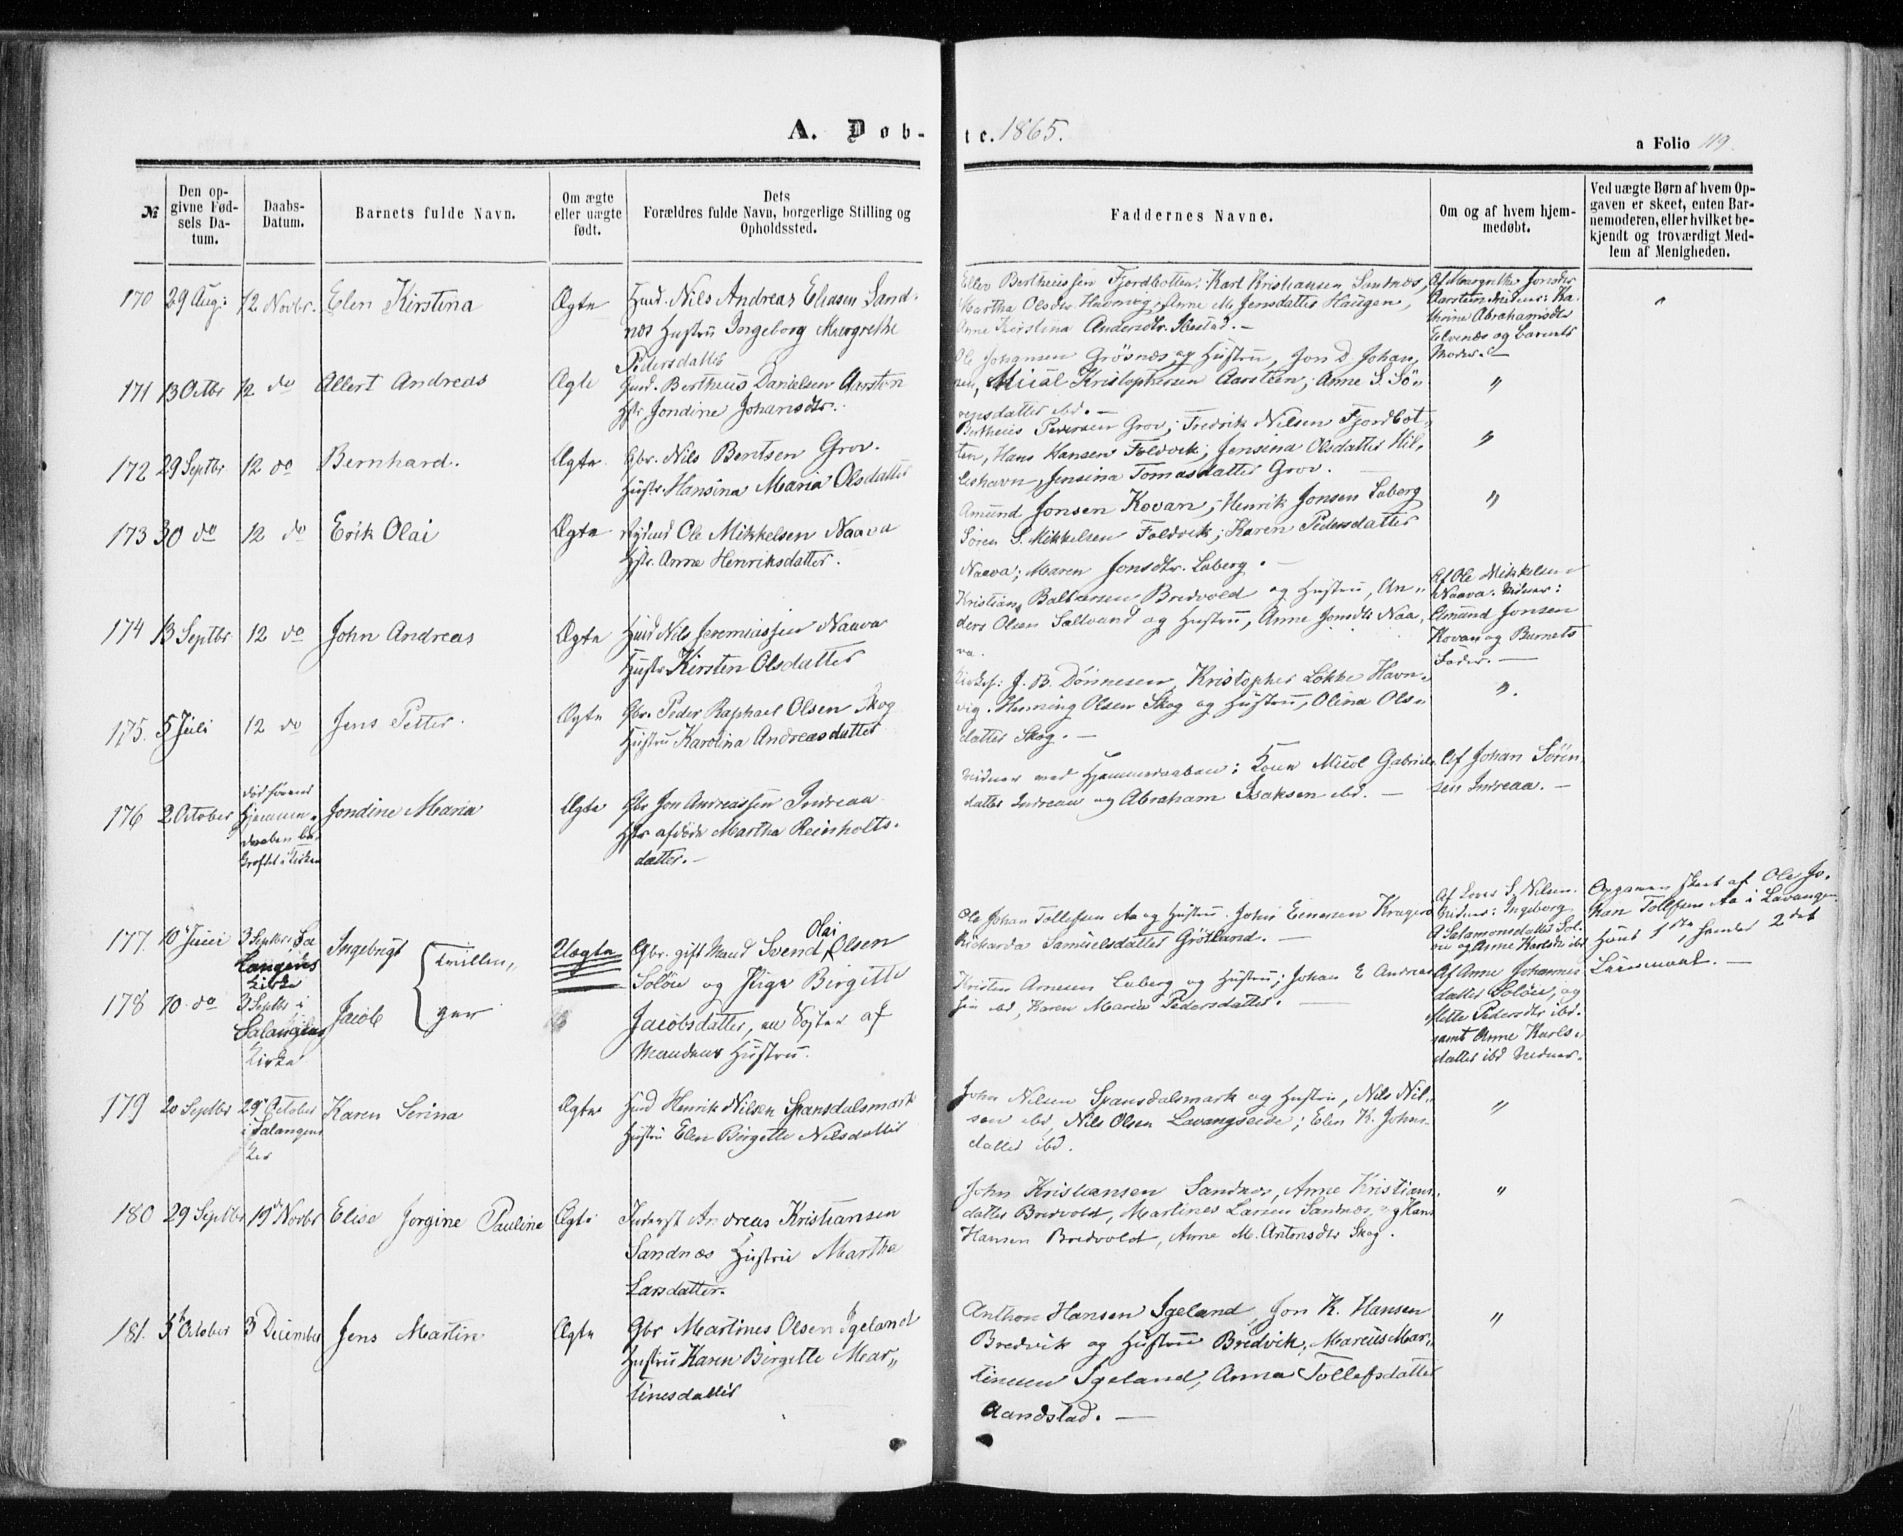 A. Døb-
te. 1865.
a Folio 119.
№
Den op-
givne Fød-
sels Da-
tum.
Daabs-
Datum.
Barnets fulde Navn.
Om ægte
eller uægte
født.
Dets
Forældres fulde Navn, borgerlige Stilling og
Opholdssted.
Faddernes Navne.
Om og af hvem hjem-
medøbt.
Ved uægte Børn af hvem Op-
gaven er skeet, enten Bar-
nemoderen, eller hvilket be-
kjendt og troværdigt Med-
lem af Menigheden.
170 29 Aug: 12 Novbr. Elen Kirstina Ægte
Huusd. Nils Andreas Eliasen Sand-
næs Hustru Ingeborg Margrethe
Pedersdatter
Bertheussen Fjordbotten, Karl Kristiansen Sandnæs,
Martha Olsdtr Havnvig, Anne M. Jensdatter Haugen,
Anne Kirstina Andersdtr. Ibestad. —
Af Margrethe Jonsdtr
Aarsten. Vidner: Ka-
thrine Abrahamsdtr
Elvenæs og Barnets
Moder. —
171 13 Octbr 12 do Albert Andreas Ægte
Huusd. Bertheus Danielsen Aarsten
Hstr. Jondine Johansdtr.
Ole Johansen Grøsnæs og Hustru, Jon D. Johan-
sen, Micael Kristophersen Aarsteen, Anne S. Sö-
rensdatter ibd. —
"
172 29 Septbr 12 do Bernhard. Ægte.
Gbr. Nils Bentsen Grov.
Hustr. Hansina Maria Olsdatter
Bertheus Pedersen Grov, Fredrik Nilsen Fjordbot-
ten, Hans Hansen Foldvik, Jensina Olsdatter Hil-
leshavn, Jensina Tomasdatter Grov. —
"
173 30 do 12 do Erik Olai Ægte
Ole Mikkelsen Naava
Hstr. Anne Henriksdatter.
Amund Jonsen Kovan, Henrik Jonsen Laberg
Sören S. Mikkelsen Foldvik, Karen Pedersdatter
Naava; Maren Jonsdtr. Laberg. —
"
174 13 Septbr 12 do John Andreas Ægte
Huusd Nils Jeremiassen Naava
Hustr Kirsten Olsdatter
Kristian Baltsersen Bredvold og Hustru, An-
ders Olsen Saltvand og Hustru, Anne Jonsdtr Naa-
va.
Af Ole Mikkelsen
Naava. Vidner:
Amund Jonsen
Kovan og Barnets
Fader. —
175. 5 Juli 12 do Jens Petter. Ægte
Gbr. Peder Raphael Olsen Skog
Hustru Karolina Andreasdatter
J. B. Dönnesen, Kristopher Lökke Havn-
vig. Henning Olsen Skog og Hustru, Olina Ols-
datter Skog. —
".
176 2 October
død
Hjemme-
daaben be-
Jondine Maria Ægte
Gbr Jon Andreassen Indreaa
Hstr afdöde Martha Reinholts-
datter. —
Vidner med Hjemmedaaben: Kone Micol Gabriels-
datter Indreaa og Abraham Isaksen ibd. —
Af Johan Sören-
sen Indreaa. —
177. 10 Juni 3 Septbr i Sa-
langens
Kirke
Ingebrigt
{ Tvillin,,
ger
Uægte
Gbr. gift Mand Svend Olai Olsen
Soløie og Pige Birgitte
Jacobsdatter, en Søster af
Mandens Hustru.
Ole Johan Tollefsen Aa og Hustru
Rickarda Samuelsdatter Grötland. —
Nilsen.
Vidner: Ingeborg
A Salamonsdatter Sol-
øie og Anne Karlsdtr ibd
Opgaven skeet af Ole Jo-
han Tollefsen Aa i Lavangen
Hans 1ste, hendes 2det
Leiermaal. —
178 10 do 3 Septbr i
Salangens
Kirke
Jacob
Kristen Arnesen Laberg og Hustru; Johan E Andreas-
sen ibd, Karen Maria Pedersdatter. —
Af Anne Johannes
datter Soløie, og
Mette Pedersdtr ibd.
samt Anne Karls-
datter ibd Vidner.
179 20 Septbr 29 October
i Salangens
Kir
Karen Serina Ægte
Huusd Henrik Nilsen Spansdalsmark
Hustru Elen Birgitte Nilsdatter
John Nilsen Spansdalsmark og Hustru, Nils Nil-
sen ibd, Nils Olsen Lavangseide; Elen K. Johns-
datter ibd.
"
180 29 Septbr 19 Novbr Elise Jorgine Pauline Ægte
Inderst Andreas Kristiansen
Sandnæs Hustru Martha
Larsdatter.
John Kristiansen Sandnæs, Anne Kristians-
datter Bredvold, Martines Larsen Sandnæs, og Hans
Hansen Bredvold, Anne M. Antonsdtr Skog.
"
181. 5 October 3 December Jens Martin Ægte
Gbr Martines Olsen Igeland
Hustru Karen Birgitte Mar-
tinesdatter
Anthon Hansen Igeland, Jon K. Hansen
Bredvik og Hustru Bredvik, Marius Mar-
tinesen Igeland, Anna Tollefsdatter
Aandstad. —
"